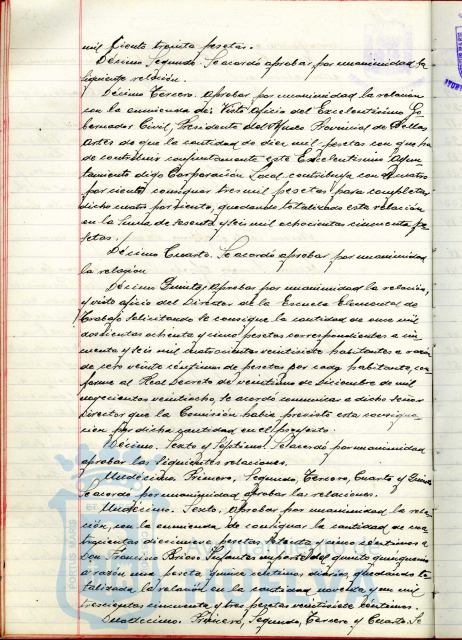 mil ciento treinta pesetas.
Décimo Segundo. Se acordó aprobar por unanimidad la
siguiente relación.
Décimo Tercero. Aprobar por unanimidad la relación
con la enmienda de: Visto oficio del Excelentísimo Go-
bernador Civil, Presidente del Museo Provincial de Bellas
Artes de que la cantidad de diez mil pesetas con que ha
de contribuir conjuntamente este Excelentísimo Ayun-
tamiento digo Corporación Local contribuya con cuatro
por ciento consignar tres mil pesetas para completar
dicho cuatro por ciento, quedando totalizada esta relación
en la suma de sesenta y seis mil ochocientas cincuenta pe-
setas.
Décimo Cuarto. Se acordó aprobar por unanimidad
la relación
Décimo Quinto; aprobar por unanimidad la relación,
y visto oficio del Director de la Escuela Elemental de
Trabajo solicitando se consigne la cantidad de once mil
doscientas ochenta y cinco pesetas correspondientes a cin-
cuenta y seis mil cuatrocientos veintisiete habitantes a razón
de cero veinte céntimos de pesetas por cada habitante, con-
forme al Real Decreto de veintiuno de Diciembre de mil
novecientos veintiocho, se acordó comunicar a dicho Señor
Director que la Comisión había previsto esta consigna-
ción por dicha cantidad en el proyecto.
Décimo. Sexto y Séptimo. Se acordó por unanimidad
aprobar las siguientes relaciones.
Undécimo. Primero, Segundo, Tercero, Cuarto y Quinto
Se acordó por unanimidad aprobar las relaciones.
Undécimo. Sexto, aprobar por unanimidad la rela-
ción, con la enmienda de consignar la cantidad de cua-
trocientas diecinueve pesetas setenta y cinco céntimos a
Don Francisco Brios Infantes importe del quinto quinquenio
a razón una peseta quince céntimos diarios, quedando to-
talizada la relación en la cantidad noventa y un mil
trescientas cincuenta y tres pesetas veintisiete céntimos.
Duodécimo. Primero, Segundo, Tercero y Cuarto. Se
PORTUS MARIS